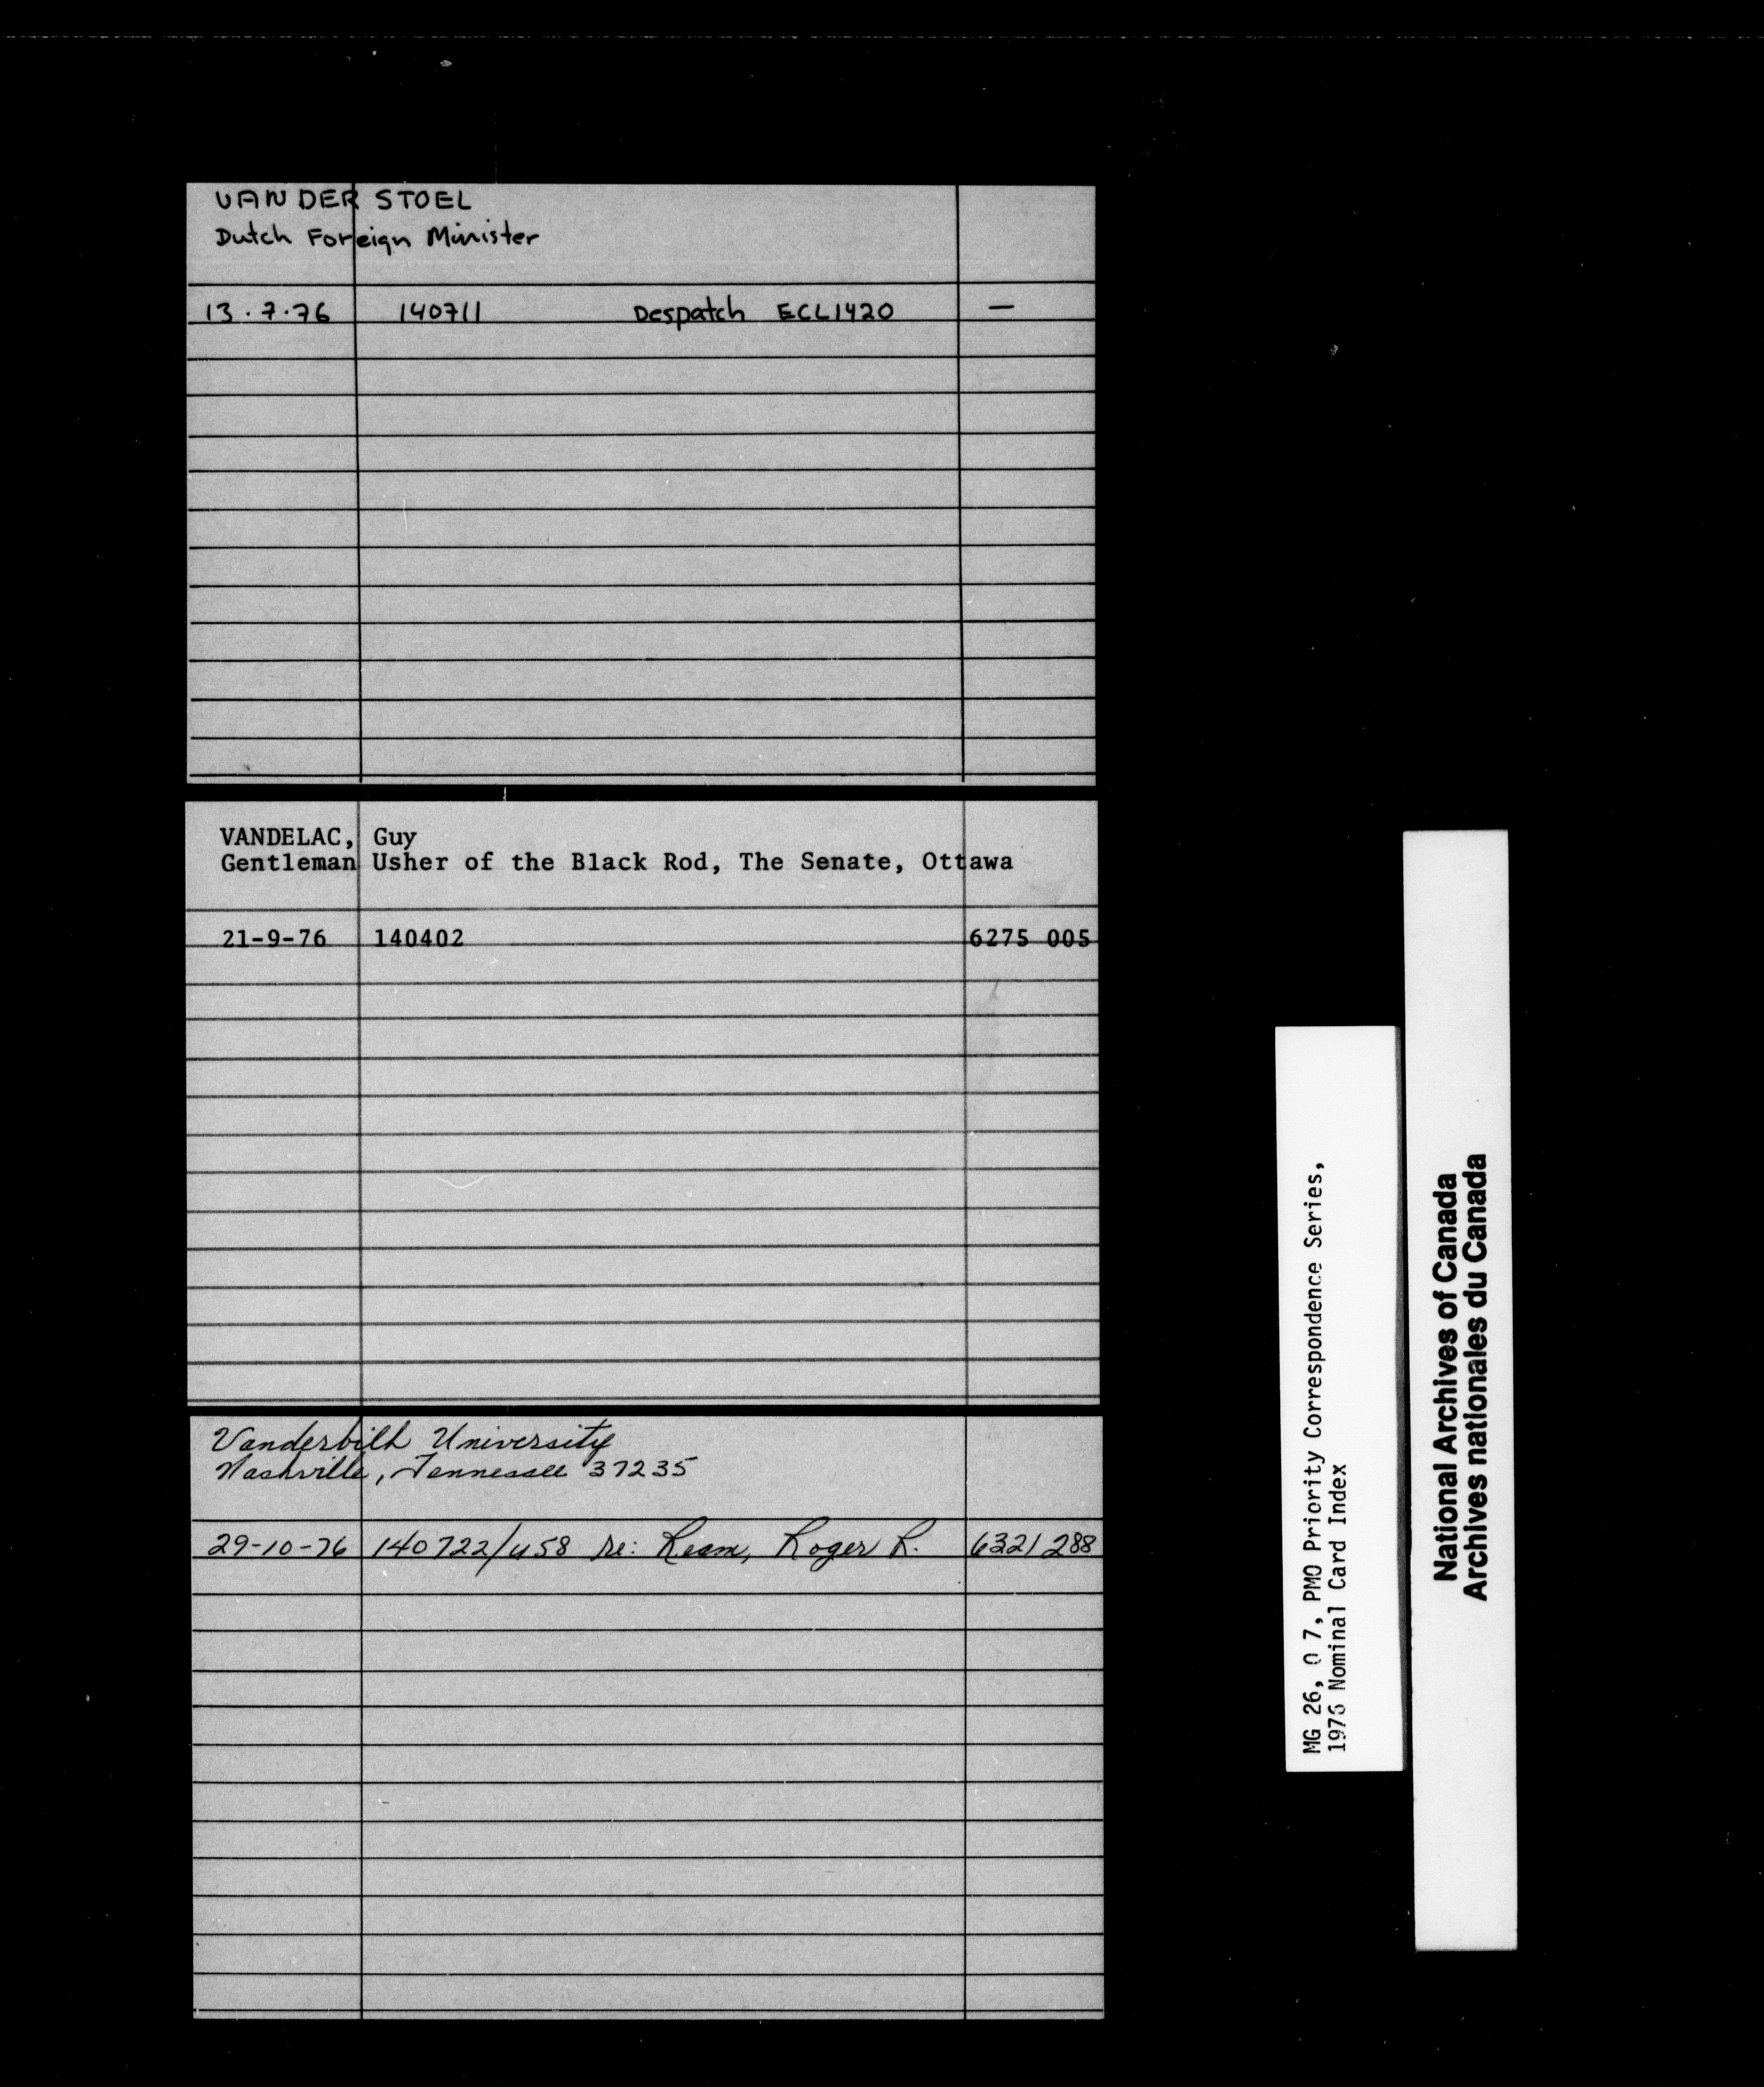 VAN DER STOEL
Dutch Foreign Minister
13.7.76 140711 Despatch ECL1420 —
VANDELAC, Guy
Gentleman Usher of the Black Rod, The Senate, Ottawa
21-9-76 140402 6275 005
Vanderbilt University
Nashville, Tennessee 37235
29-10-76 140722/U58 re: Ream, Roger R. 6321 288
MG 26, O 7, PMO Priority Correspondence Series,
1976 Nominal Card Index
National Archives of Canada
Archives nationales du Canada